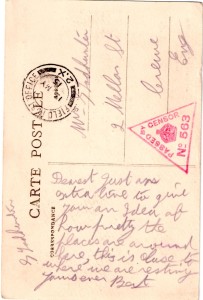 Miss
2 Mellor St
Crewe
Eng
CARTE POSTALE
CORRESPONDANCE
FIELD POST OFFICE
PASSED BY CENSOR
No 563
Dearest Just an
extra line to give
you an Idea of
how pretty the
places are around
here, this is close to
where we are resting
Yours ever Bert